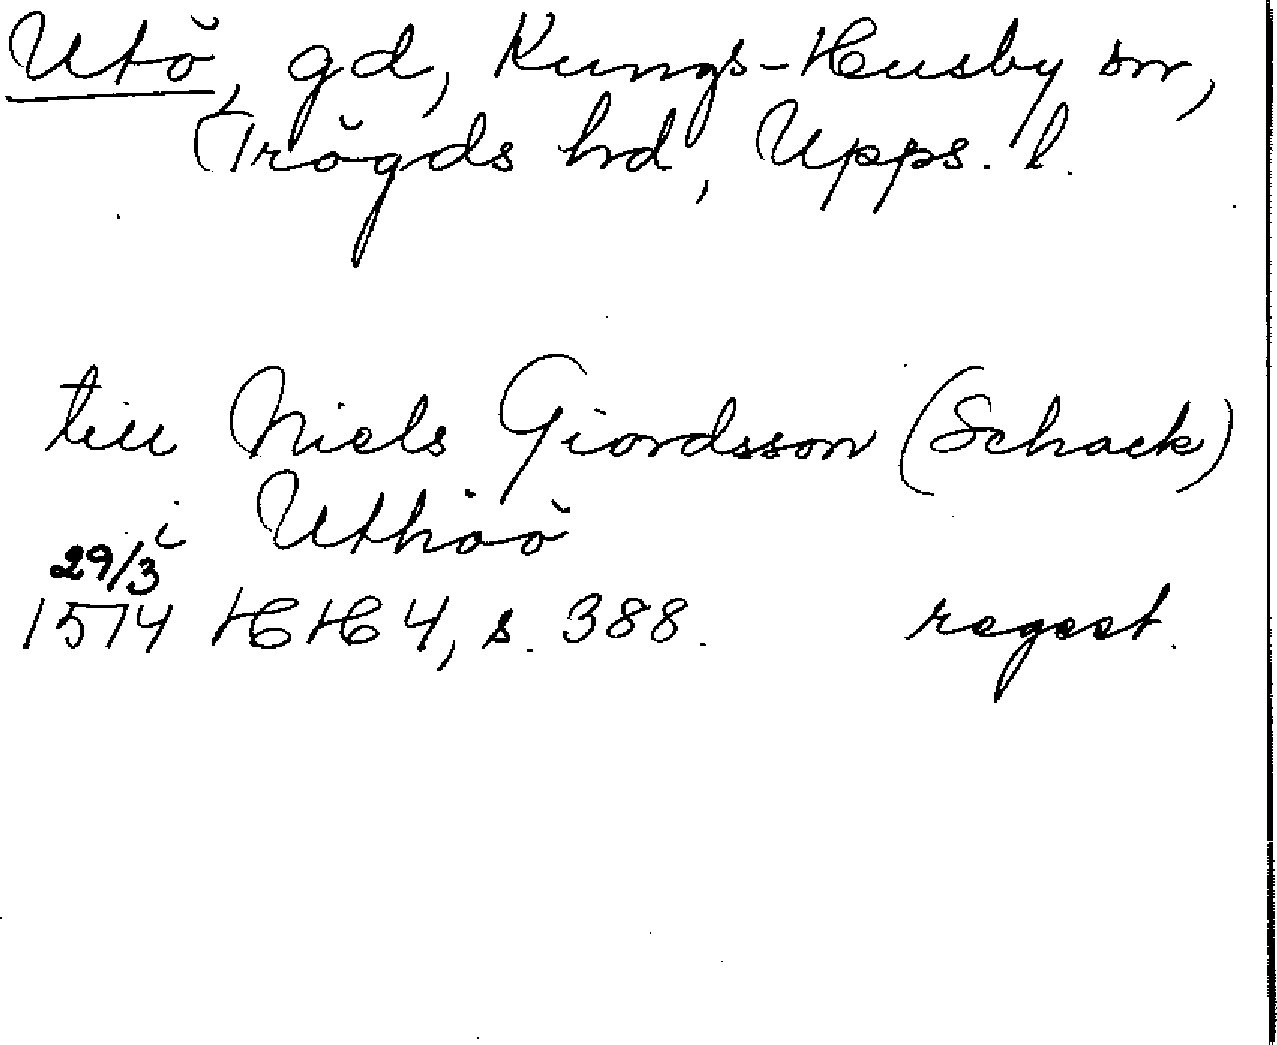 Utö, gd, Kungs-Husby sn,
Trögds hd, Upps. l.
till Niels Giordsson (Schack)
i Uthöö
29/3
1574 HH 4, s. 388. regest.